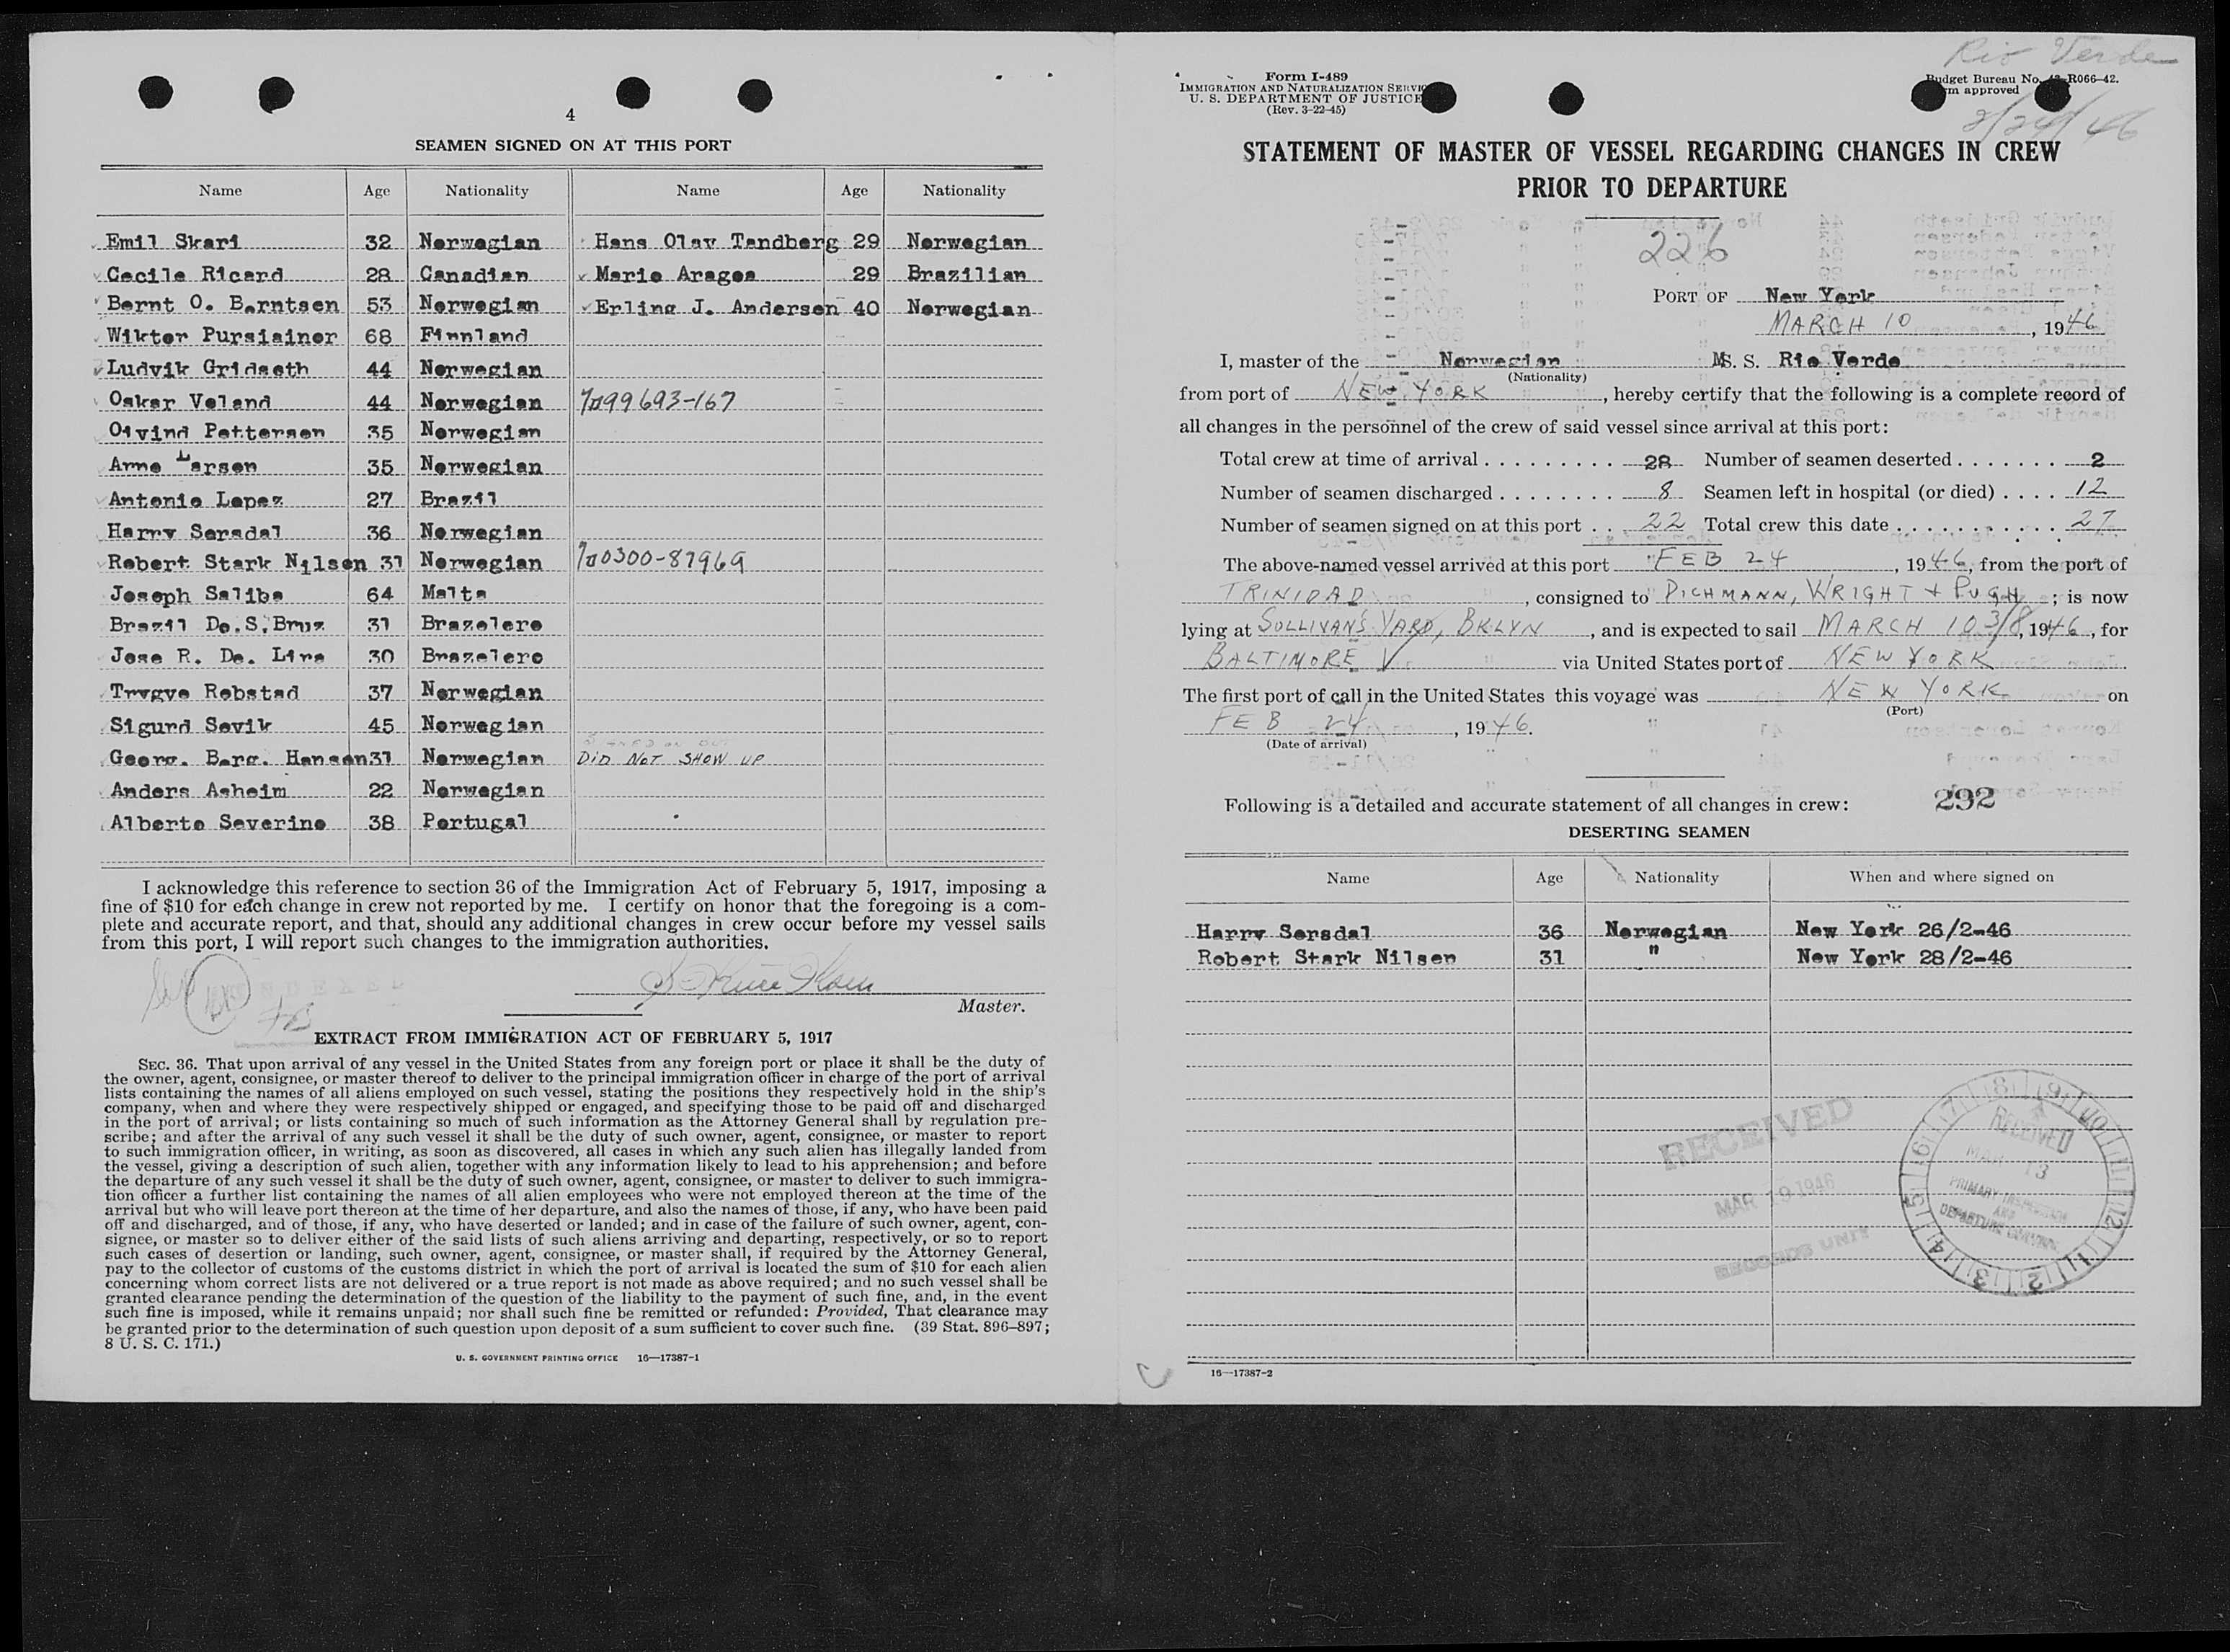 4
SEAMEN SIGNED ON AT THIS PORT
Name Age Nationality Name Age Nationality
Emil Skari 32 Norwegian Hans Olav Tandberg 29 Norwegian
Cecile Ricard 28 Canadian Mario Aragoa 29 Brazilian
Bernt O. Berntsen 53 Norwegian Erling J. Andersen 40 Norwegian
Wiktor Pursiainer 68 Finnland
Ludvik Gridseth 44 Norwegian
Oskar Veland 44 Norwegian 99693-167
Oivind Pettersen 35 Norwegian
Arne Larsen 35 Norwegian
Antonio Lopez 27 Brazil
Harry Sørsdal 36 Norwegian
Robert Stark Nilsen 31 Norwegian 0300-87969
Joseph Saliba 64 Malta
Brazil De.S.Bruz 31 Brazelero
Jose R. De. Lira 30 Brazelero
Trygve Robstad 37 Norwegian
Sigurd Søvik 45 Norwegian
Georg. Berg. Hansen 31 Norwegian DID NOT SHOW UP
Anders Asheim 22 Norwegian
Alberto Severino 38 Portugal
I acknowledge this reference to section 36 of the Immigration Act of February 5, 1917, imposing a
fine of $10 for each change in crew not reported by me. I certify on honor that the foregoing is a com-
plete and accurate report, and that, should any additional changes in crew occur before my vessel sails
from this port, I will report such changes to the immigration authorities.
Master.
EXTRACT FROM IMMIGRATION ACT OF FEBRUARY 5, 1917
SEC. 36. That upon arrival of any vessel in the United States from any foreign port or place it shall be the duty of
the owner, agent, consignee, or master thereof to deliver to the principal immigration officer in charge of the port of arrival
lists containing the names of all aliens employed on such vessel, stating the positions they respectively hold in the ship's
company, when and where they were respectively shipped or engaged, and specifying those to be paid off and discharged
in the port of arrival; or lists containing so much of such information as the Attorney General shall by regulation pre-
scribe; and after the arrival of any such vessel it shall be the duty of such owner, agent, consignee, or master to report
to such immigration officer, in writing, as soon as discovered, all cases in which any such alien has illegally landed from
the vessel, giving a description of such alien, together with any information likely to lead to his apprehension; and before
the departure of any such vessel it shall be the duty of such owner, agent, consignee, or master to deliver to such immigra-
tion officer a further list containing the names of all alien employees who were not employed thereon at the time of the
arrival but who will leave port thereon at the time of her departure, and also the names of those, if any, who have been paid
off and discharged, and of those, if any, who have deserted or landed; and in case of the failure of such owner, agent, con-
signee, or master so to deliver either of the said lists of such aliens arriving and departing, respectively, or so to report
such cases of desertion or landing, such owner, agent, consignee, or master shall, if required by the Attorney General,
pay to the collector of customs of the customs district in which the port of arrival is located the sum of $10 for each alien
concerning whom correct lists are not delivered or a true report is not made as above required; and no such vessel shall be
granted clearance pending the determination of the question of the liability to the payment of such fine, and, in the event
such fine is imposed, while it remains unpaid; nor shall such fine be remitted or refunded: Provided, That clearance may
be granted prior to the determination of such question upon deposit of a sum sufficient to cover such fine. (39 Stat. 896–897;
8 U. S. C. 171.)
U. S. GOVERNMENT PRINTING OFFICE 16—17387-1
Rio Verde
2/24/46
Form I-489
IMMIGRATION AND NATURALIZATION SERVIC
U. S. DEPARTMENT OF JUSTICE
(Rev. 3-22-45)
Budget Bureau No. 43-R066-42.
rm approved
STATEMENT OF MASTER OF VESSEL REGARDING CHANGES IN CREW
PRIOR TO DEPARTURE
226
PORT OF New York
MARCH 10, 1946
I, master of the Norwegian MS. S. Rio Verde
(Nationality)
from port of NEW YORK, hereby certify that the following is a complete record of
all changes in the personnel of the crew of said vessel since arrival at this port:
Total crew at time of arrival 28 Number of seamen deserted 2
Number of seamen discharged 8 Seamen left in hospital (or died) 12
Number of seamen signed on at this port 22 Total crew this date 27
The above-named vessel arrived at this port FEB 24, 1946, from the port of
TRINIDAD, consigned to PICHMANN, WRIGHT + PUGH; is now
lying at SOLLIVAN'S YARD, BKLYN, and is expected to sail MARCH 10 3/8, 1946, for
BALTIMORE via United States port of NEW YORK
The first port of call in the United States this voyage was NEW YORK on
(Port)
FEB 24, 1946.
(Date of arrival)
Following is a detailed and accurate statement of all changes in crew: 292
DESERTING SEAMEN
Name Age Nationality When and where signed on
Harry Sørsdal 36 Norwegian New York 26/2-46
Robert Stark Nilsen 31 " New York 28/2-46
RECEIVED
MAR 19 1946
RECORDS UNIT
RECEIVED
MAR 13
PRIMARY INSPECTION
AND
DEPARTURE CONTROL
16—17387-2